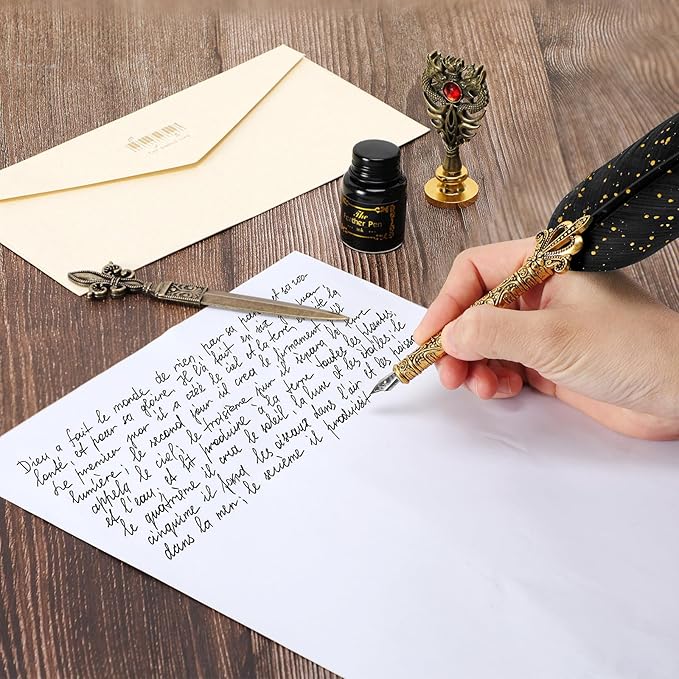 The
ther Pen
Ink
Dieu a fait le monde de rien, par sa et sa vo-
lonté, et pour sa gloire. Il l'a fait en six
Le premier jour il a créé le ciel et la terre, la
lumière; le second jour il crea le firmament
appela le ciel; le troisième jour il separa la terre
et l'eau, et fit produire à la terre toutes les plantes
le quatrième il crea le soleil, la lune et les étoiles le
cinquième il les oiseaux dans l'air et les
dans la mer; le sexieme il produisit